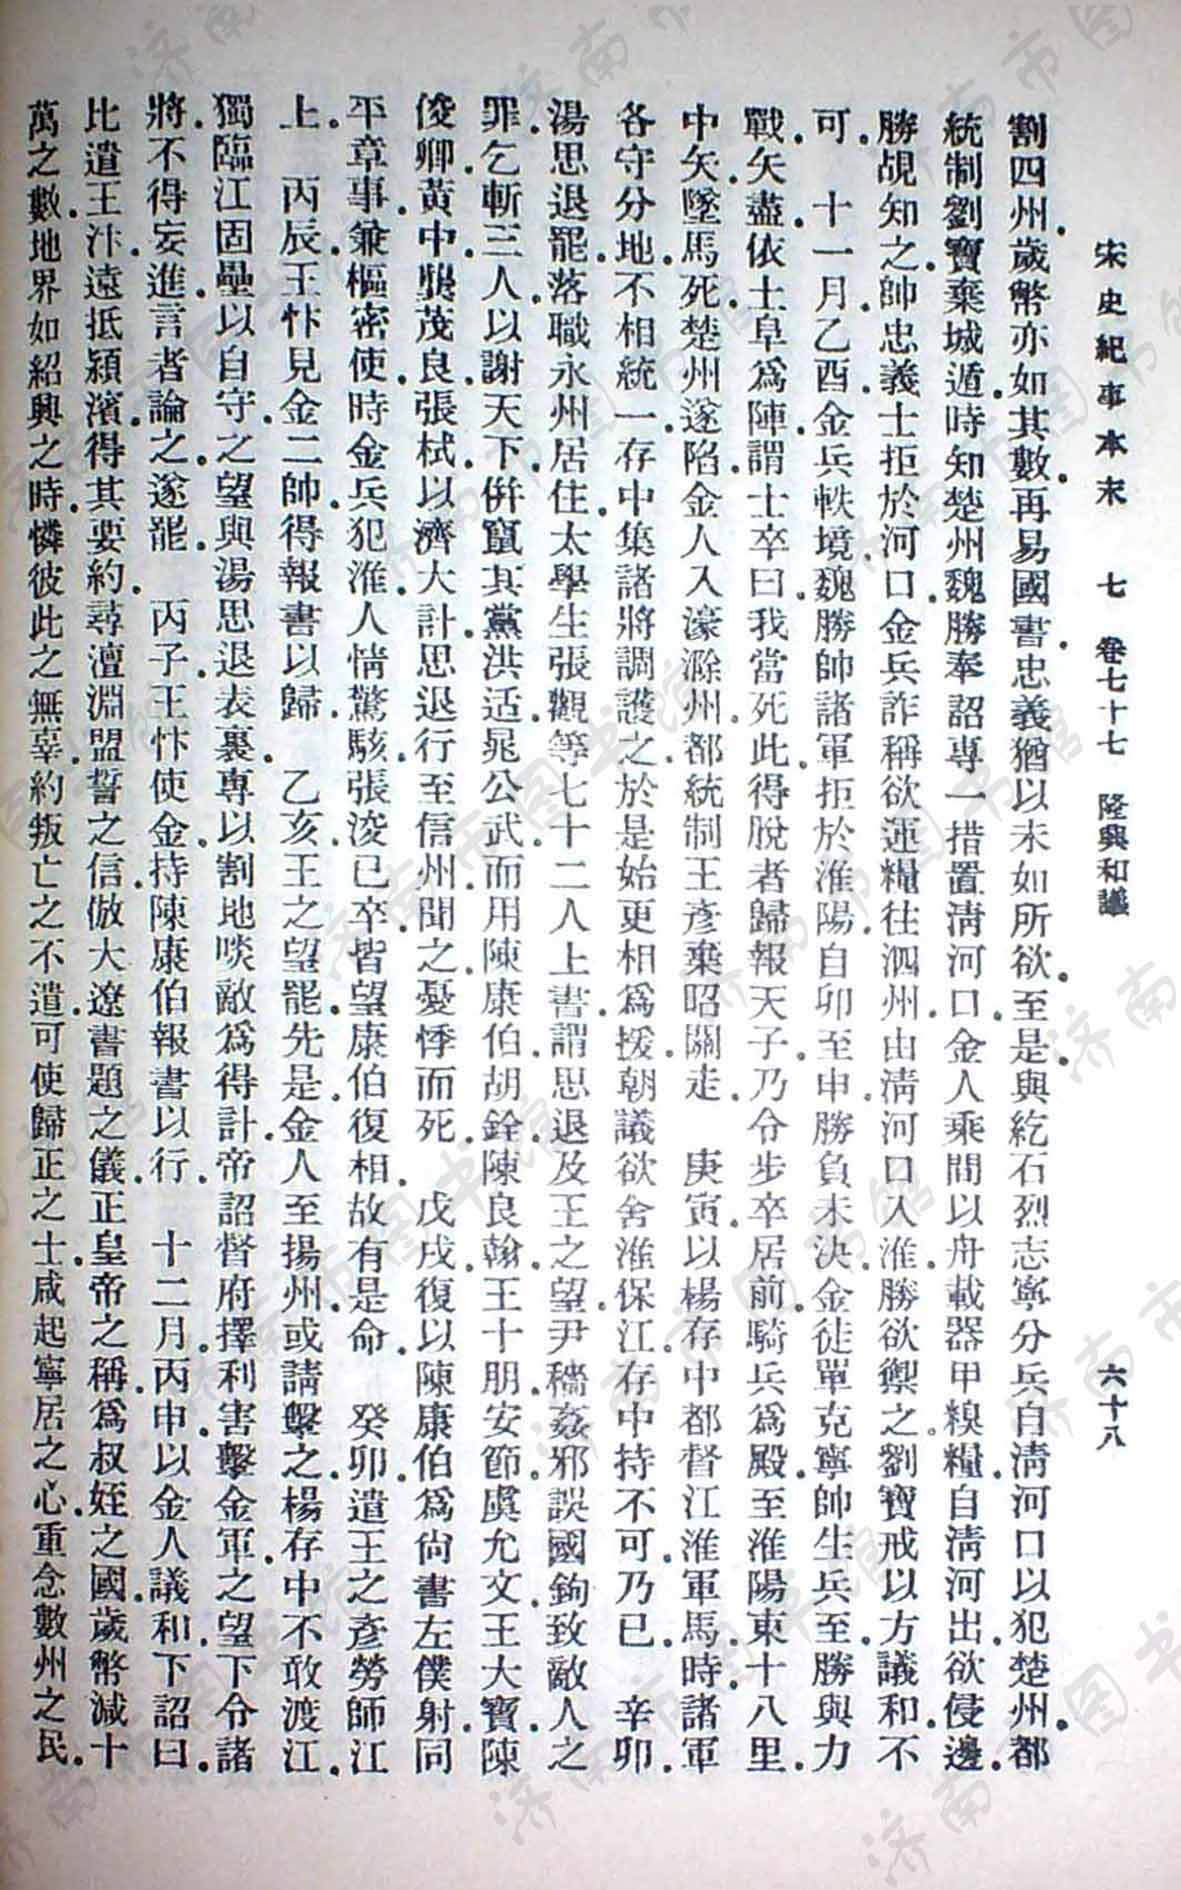 宋史紀事本末　七　卷七十七　隆興和議　六十八
割四州．歲幣亦如其數．再易國書．忠義猶以未如所欲．至是．與紇石烈志寧分兵自清河口以犯楚州．都
統制劉寶棄城遁．時知楚州魏勝奉詔專一措置清河口．金人乘間以舟載器甲糗糧．自清河出．欲侵邊．
勝覘知之．帥忠義士拒於河口．金兵詐稱欲運糧往泗州．由清河口入淮．勝欲禦之．劉寶戒以方議和．不
可．　十一月．乙酉．金兵軼境．魏勝帥諸軍拒於淮陽．自卯至申．勝負未決．金徒單克寧帥生兵至．勝與力
戰．矢盡．依土阜爲陣．謂士卒曰．我當死此．得脫者歸報天子．乃令步卒居前．騎兵爲殿．至淮陽東十八里．
中矢．墜馬死．楚州遂陷．金人入濠滁州．都統制王彥棄昭關走．　庚寅．以楊存中都督江淮軍馬．時諸軍
各守分地．不相統一．存中集諸將調護之．於是始更相爲援．朝議欲舍淮保江．存中持不可．乃已．　辛卯．
湯思退罷．落職永州居住．太學生張觀等七十二人上書．謂思退及王之望．尹穡．姦邪誤國．鉤致敵人之
罪．乞斬三人以謝天下．併竄其黨洪适．晁公武．而用陳康伯．胡銓．陳良翰．王十朋．安節．虞允文．王大寶．陳
俊卿．黃中．龔茂良．張栻．以濟大計．思退行至信州．聞之．憂悸而死．　戊戌．復以陳康伯爲尙書左僕射．同
平章事兼樞密使．時金兵犯淮．人情驚駭．張浚已卒．皆望康伯復相．故有是命．　癸卯．遣王之彥勞師江
上．　丙辰．王忭見金二帥．得報書以歸．　乙亥．王之望罷．先是．金人至揚州．或請擊之．楊存中不敢渡江．
獨臨江固壘以自守．之望與湯思退表裏．專以割地啖敵爲得計．帝詔督府擇利害擊金軍．之望下令諸
將．不得妄進．言者論之．遂罷．　丙子．王忭使金．持陳康伯報書以行．　十二月．丙申．以金人議和．下詔曰．
比遣王汴．遠抵潁濱．得其要約．尋澶淵盟誓之信．倣大遼書題之儀．正皇帝之稱．爲叔姪之國．歲幣減十
萬之數．地界如紹興之時．憐彼此之無辜．約叛亡之不遣．可使歸正之士．咸起寧居之心．重念數州之民．